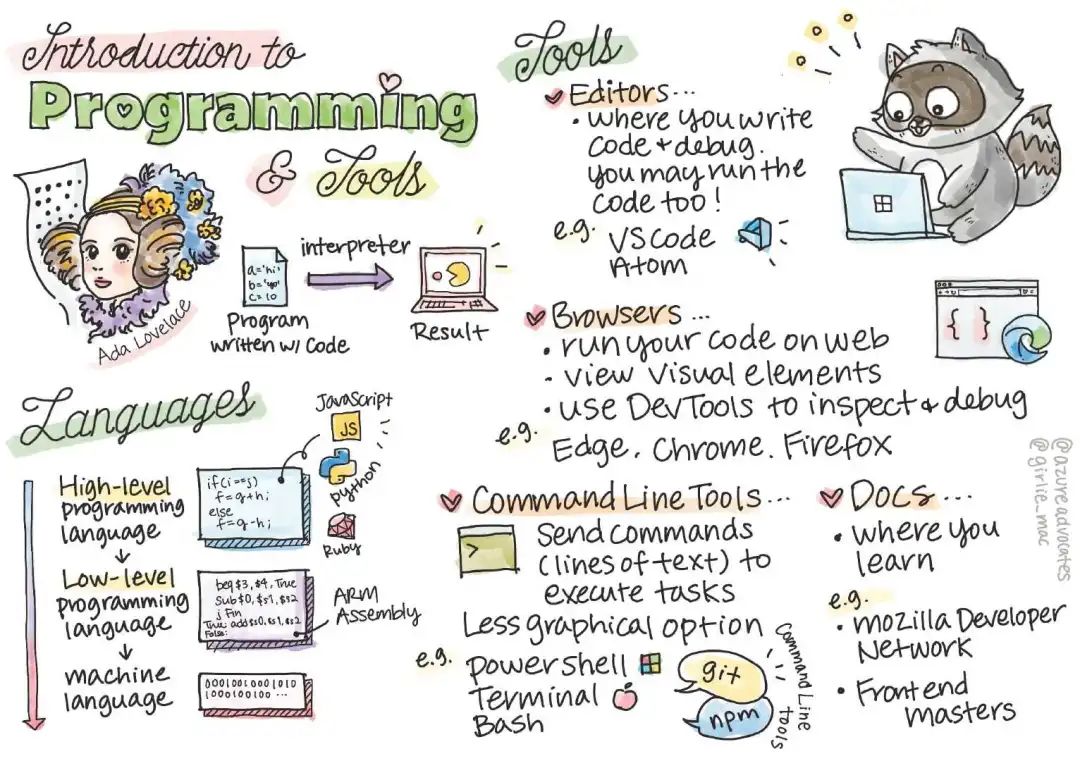 Introduction to
Programming
& Tools
Ada Lovelace
a='hi'
b='yo'
c=10
interpreter
Program
written w/ Code
Result
Languages
High-level
programming
language
Low-level
programming
language
machine
language
if(i==j)
f=g+h;
else
f=g-h;
JavaScript
JS
python
Ruby
beq $3, $4, True
Sub $0, $s1, $s2
j Fin
True: add $s0, $s1, $s2
False:
ARM
Assembly
00010010001010
1000100100 ...
Tools
Editors...
• where you write
code + debug.
you may run the
code too!
e.g. VS Code
Atom
Browsers ...
• run your code on web
• view visual elements
• use DevTools to inspect + debug
e.g. Edge. Chrome. Firefox
{ }
Command Line Tools ...
>
Send commands
(lines of text) to
execute tasks
Less graphical option
e.g. powershell
Terminal
Bash
git
npm
Command Line
tools
Docs ...
• where you
learn
e.g.
• mozilla Developer
Network
• Frontend
masters
@azureadvocates
@girlie_mac